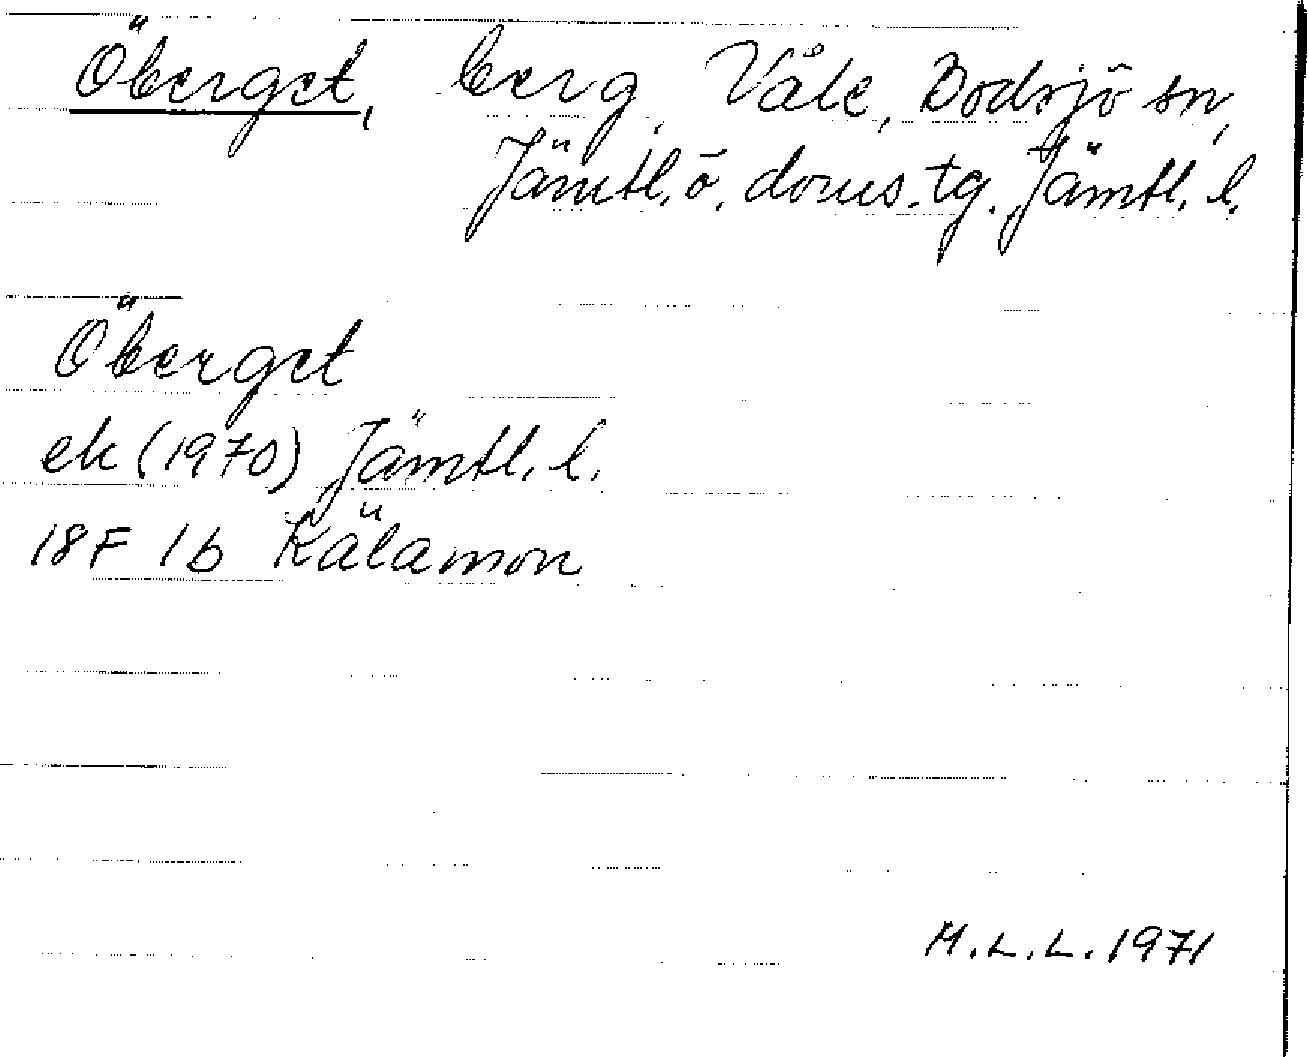 Öberget, berg, Våle, Bodsjö sn,
Jämtl. ö. doms. tg. Jämtl. l.
Öberget
ek (1970) Jämtl. l.
18F 1b Kälamon
M.L.L. 1971